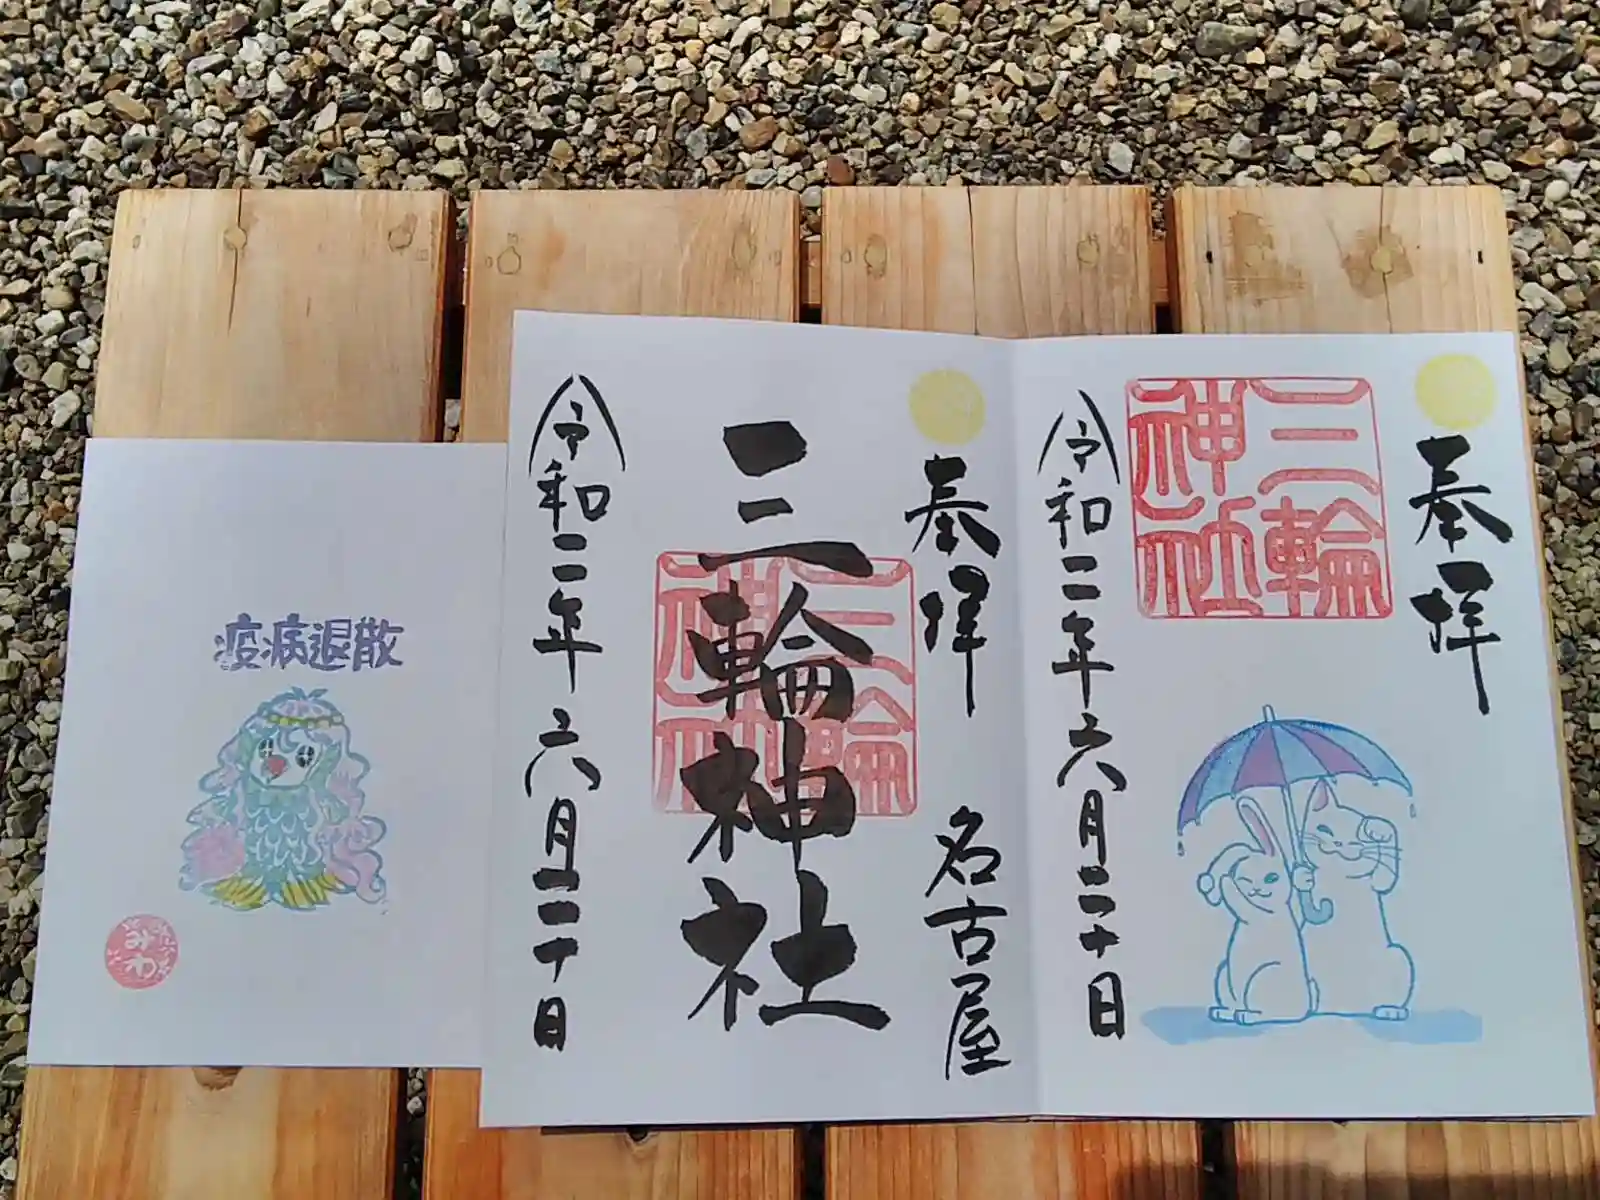 奉拝
三輪
神社
令和二年六月二十日
奉拝
名古屋
三輪神社
三輪
神社
令和二年六月二十日
疫病退散
みわ